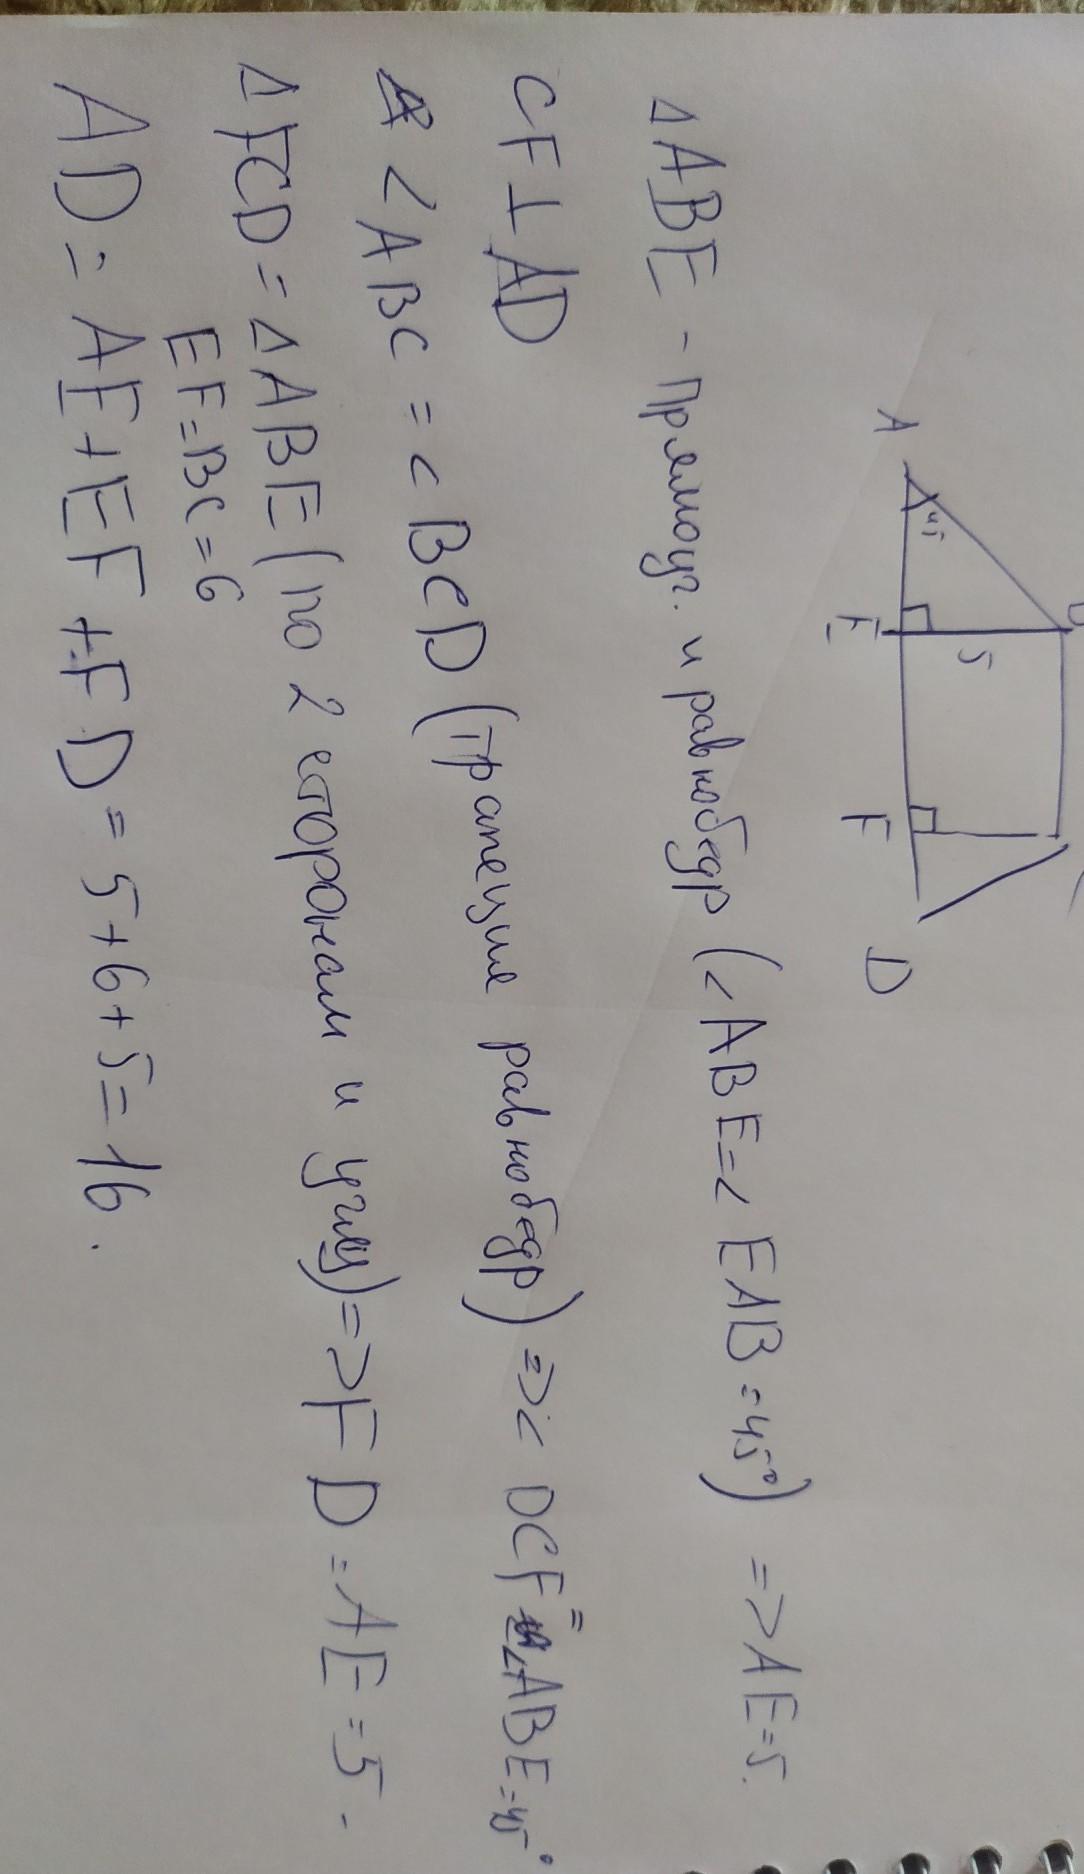 A
45
E
5
F
D
Δ ABE - Прямоуг. и равнобедр (< ABE = < EAB = 45°) => AE = 5.
CF ⊥ AD
< ABC = < BCD (трапеция равнобедр) => < DCF = < ABE = 45°
Δ FCD = Δ ABE (по 2 сторонам и углу) => FD = AE = 5 -
EF = BC = 6
AD = AE + EF + FD = 5 + 6 + 5 = 16.